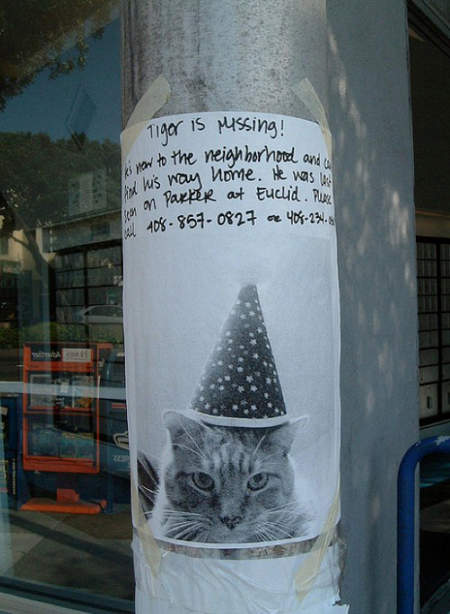 Tiger is Missing!
new to the neighborhood and
find his way home. He was last
seen on Parker at Euclid. Please
call 408-857-0827 or 408-234-